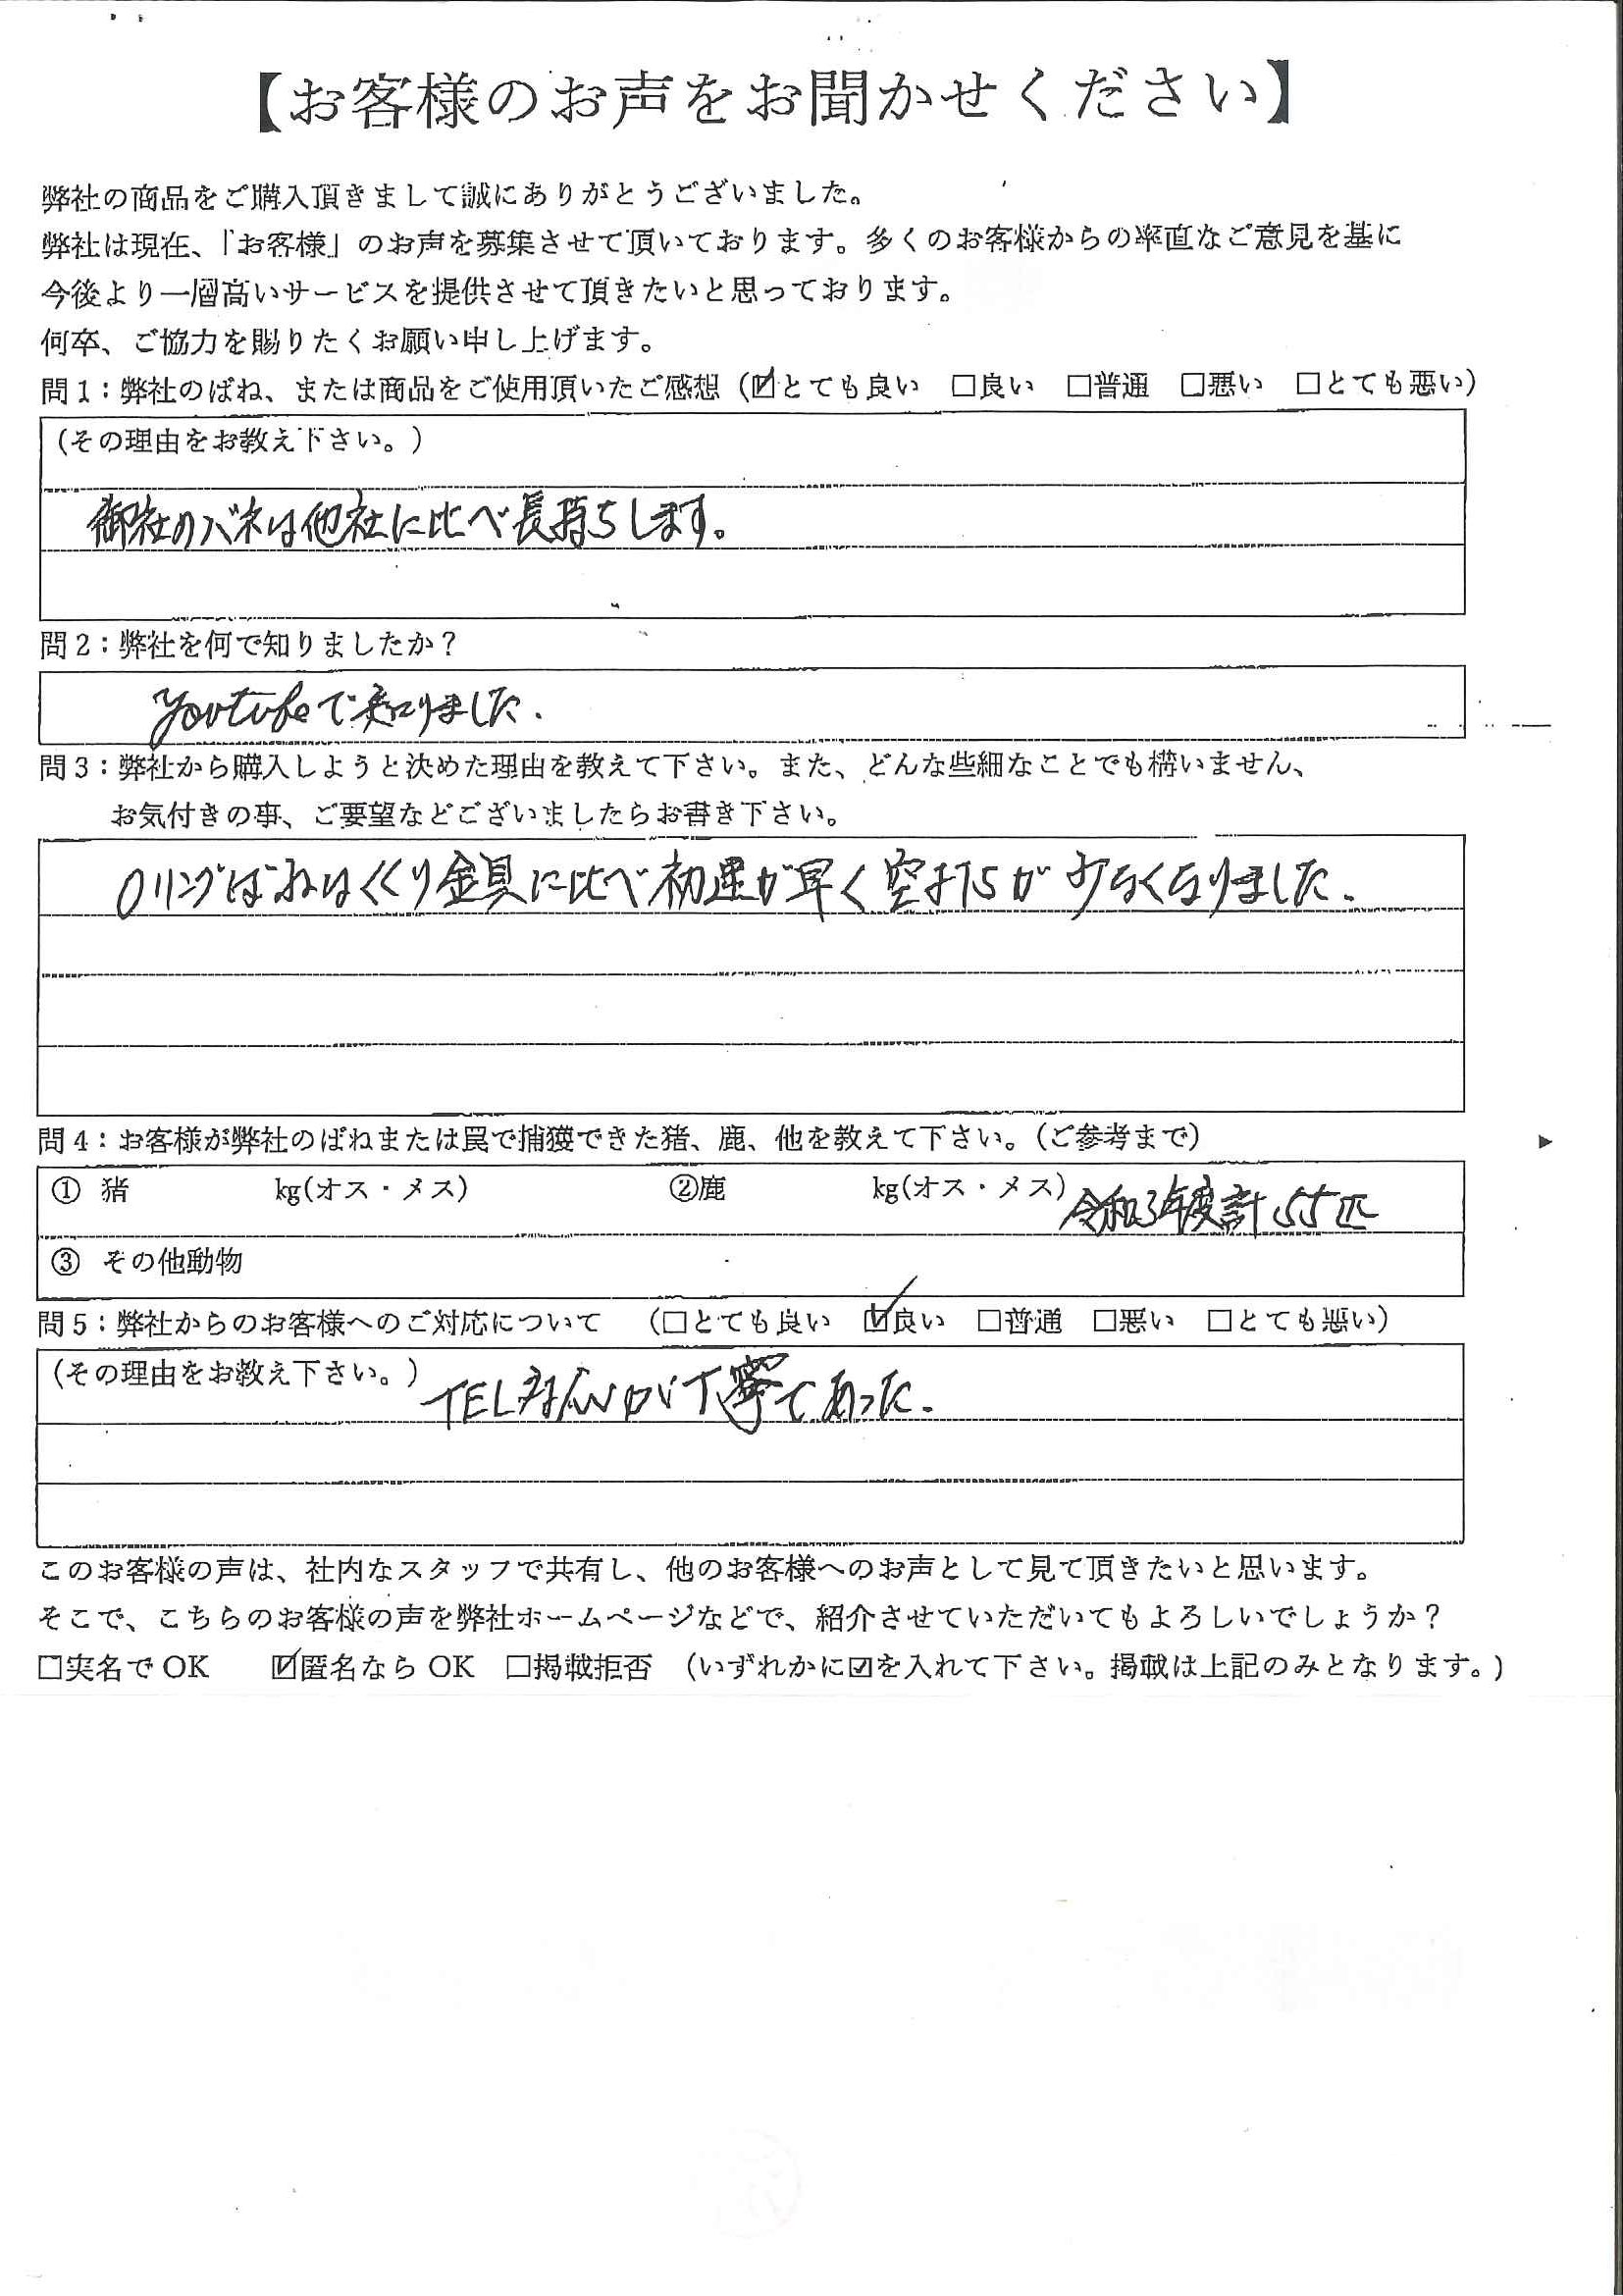 【お客様のお声をお聞かせください】
弊社の商品をご購入頂きまして誠にありがとうございました。
弊社は現在、「お客様」のお声を募集させて頂いております。多くのお客様からの率直なご意見を基に
今後より一層高いサービスを提供させて頂きたいと思っております。
何卒、ご協力を賜りたくお願い申し上げます。
問1：弊社のばね、または商品をご使用頂いたご感想（☑とても良い　□良い　□普通　□悪い　□とても悪い）
（その理由をお教え下さい。）
御社のバネは他社に比べ長持ちします。
問2：弊社を何で知りましたか？
Youtubeで知りました.
問3：弊社から購入しようと決めた理由を教えて下さい。また、どんな些細なことでも構いません、
お気付きの事、ご要望などございましたらお書き下さい。
Oリングばねはくくり金具に比べ初速が早く空打ちが少なくなりました.
問4：お客様が弊社のばねまたは罠で捕獲できた猪、鹿、他を教えて下さい。（ご参考まで）
① 猪　　　　kg(オス・メス)　　　　②鹿　　　　kg(オス・メス) 令和3年度計55匹
③ その他動物
問5：弊社からのお客様へのご対応について　（□とても良い　☑良い　□普通　□悪い　□とても悪い）
（その理由をお教え下さい。）TEL対応が丁寧であった.
このお客様の声は、社内なスタッフで共有し、他のお客様へのお声として見て頂きたいと思います。
そこで、こちらのお客様の声を弊社ホームページなどで、紹介させていただいてもよろしいでしょうか？
□実名でOK　　☑匿名ならOK　□掲載拒否　（いずれかに☑を入れて下さい。掲載は上記のみとなります。）